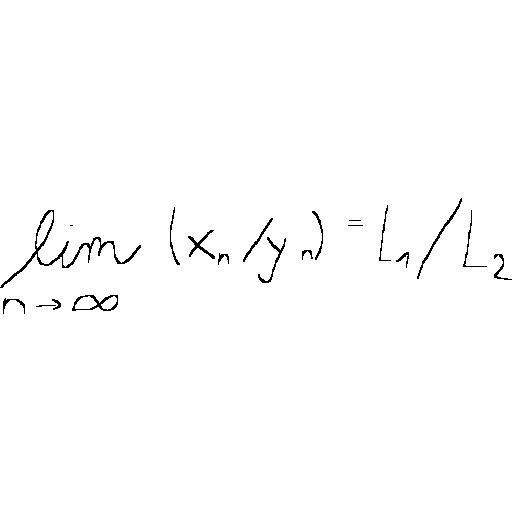 lim (xₙ/yₙ) = L₁/L₂
n→∞